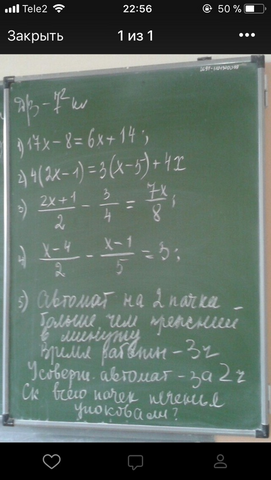 Tele2 22:56 50 %
Закрыть 1 из 1
Д/З - 7² кл
1) 17x - 8 = 6x + 14;
2) 4(2x - 1) = 3(x - 5) + 4x
3) (2x + 1)/2 - 3/4 = 7x/8;
4) (x - 4)/2 - (x - 1)/5 = 3;
5) Автомат на 2 пачки -
больше, чем прежний
в минуту
Время работы - 3ч
Усоверш. автомат - за 2ч
Ск всего пачек печения
упоковали?